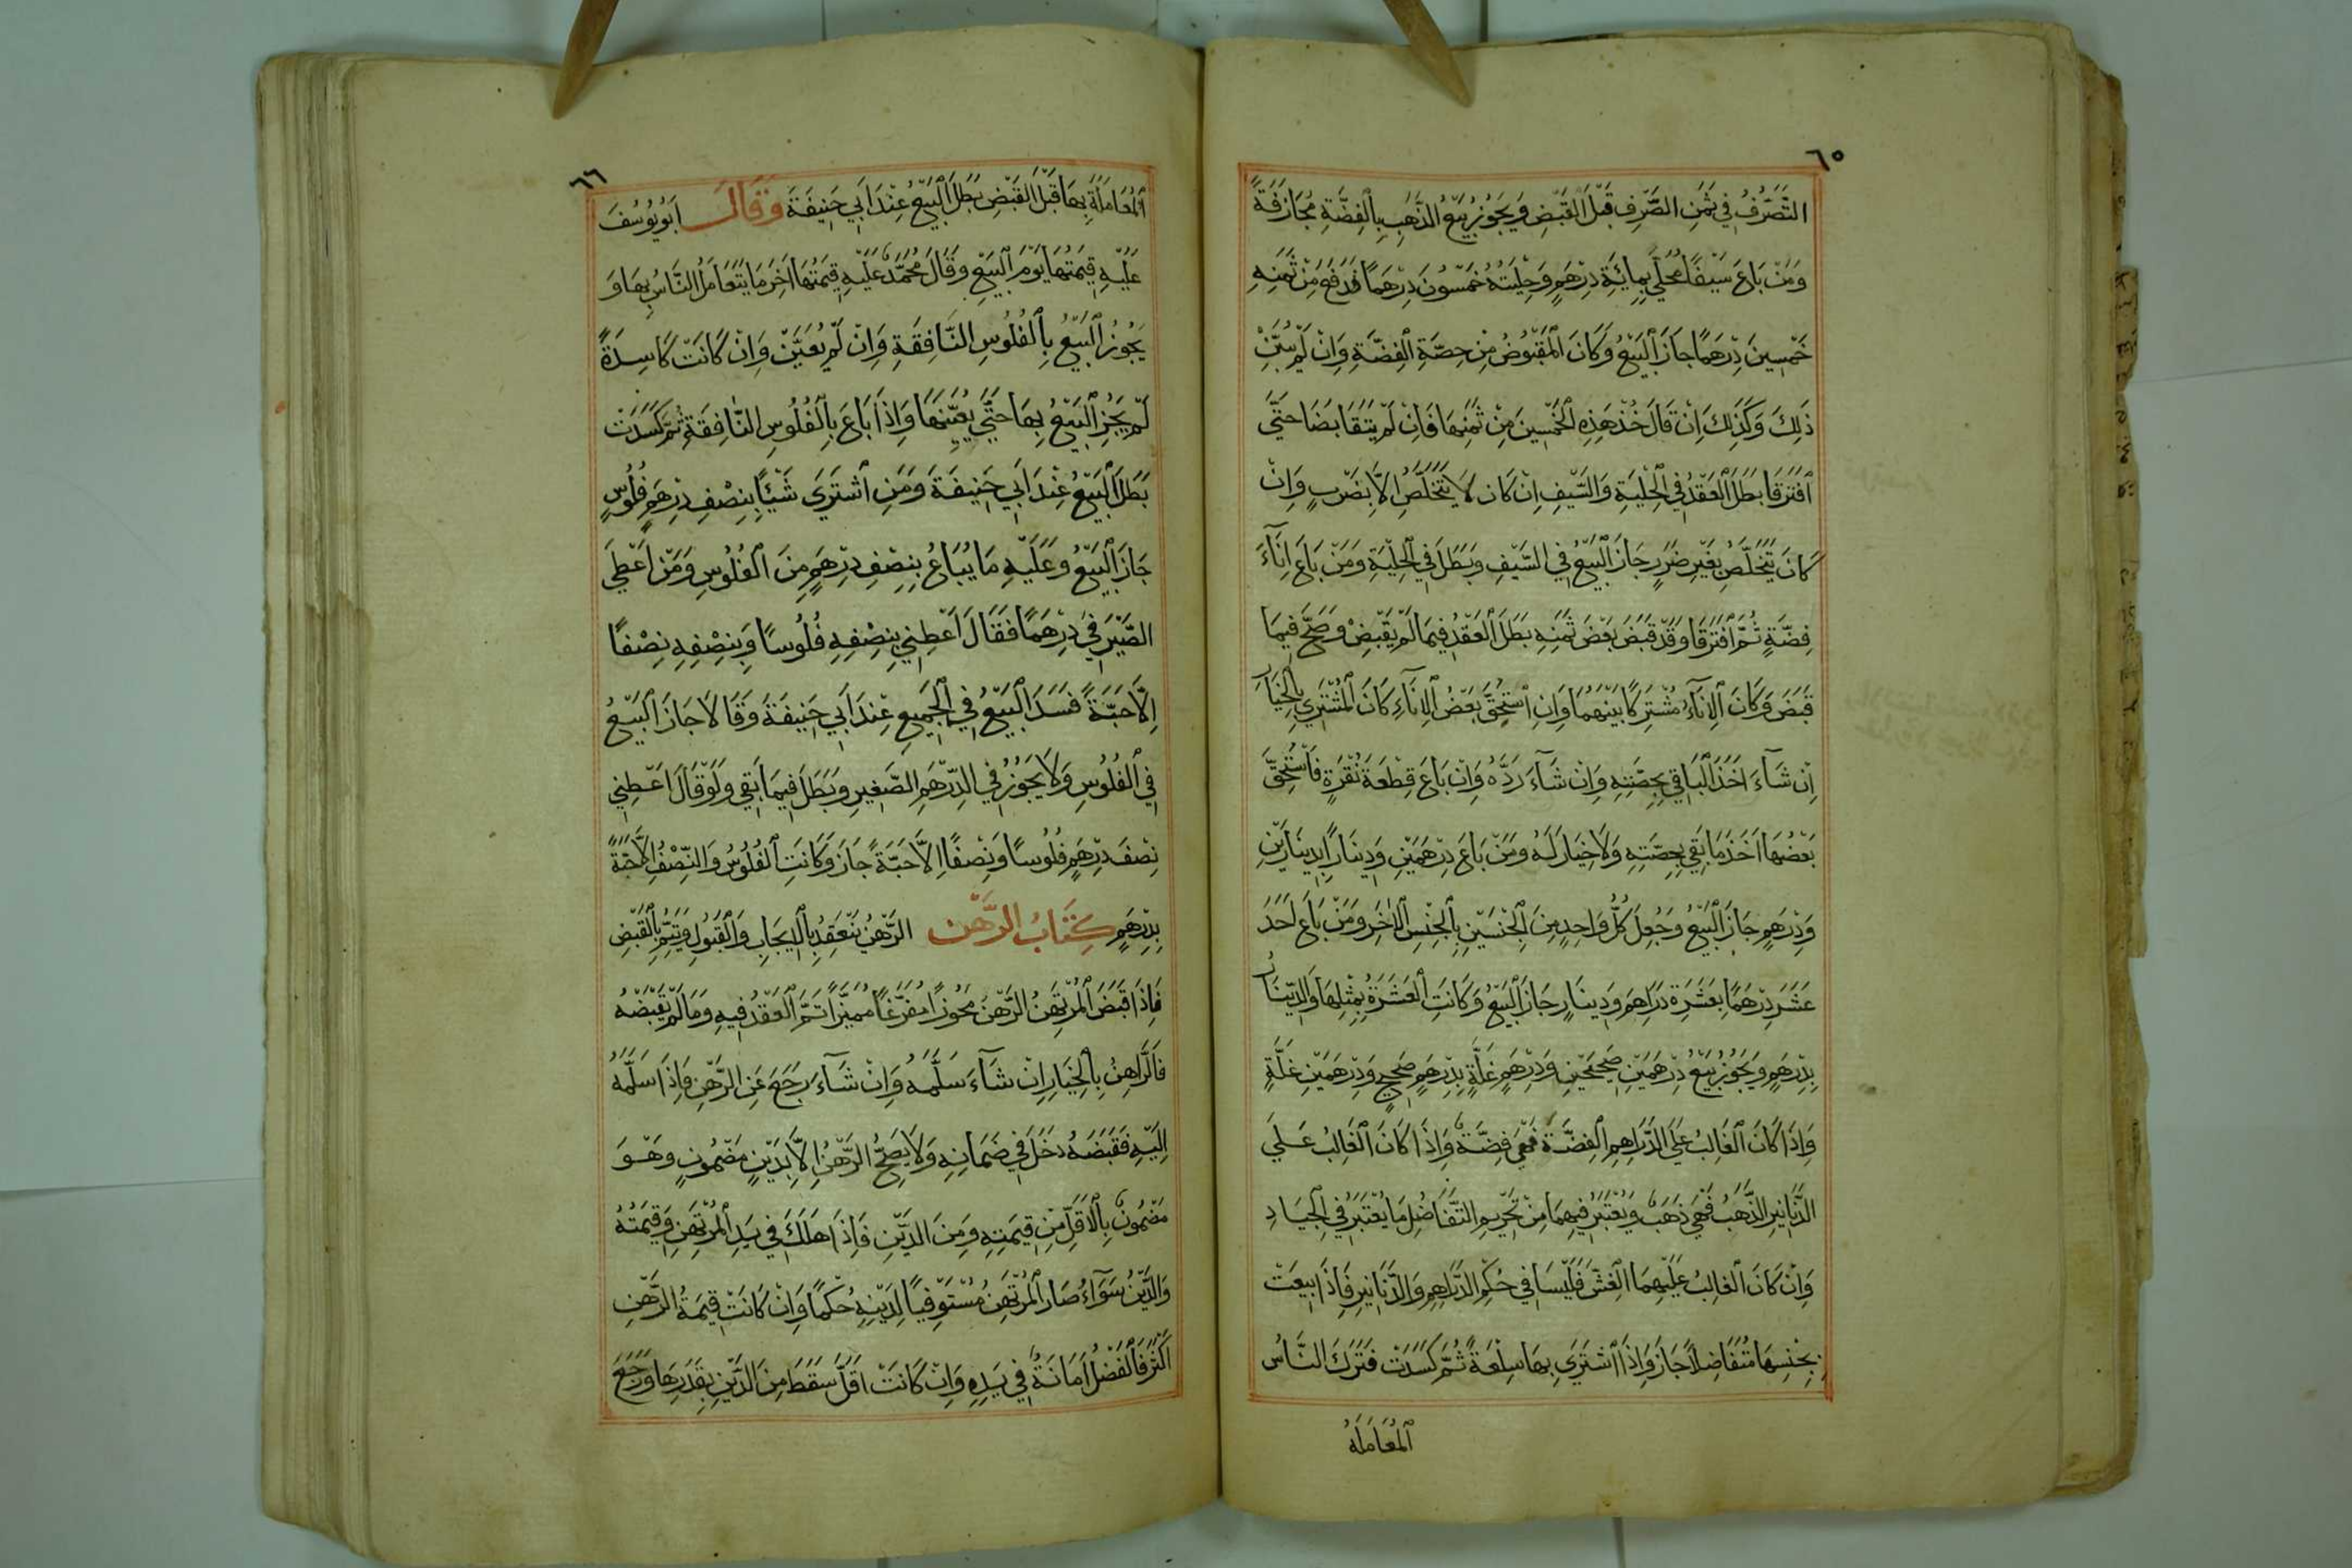 ٦٥
التَّصَرُّفُ فِي ثَمَنِ الصَّرْفِ قَبْلَ الْقَبْضِ وَيَجُوزُ بَيْعُ الذَّهَبِ بِالْفِضَّةِ مُجَازَفَةً
وَمَنْ بَاعَ سَيْفًا مُحَلًّى بِمِائَةِ دِرْهَمٍ وَحِلْيَتُهُ خَمْسُونَ دِرْهَمًا فَدَفَعَ مِنْ ثَمَنِهِ
خَمْسِينَ دِرْهَمًا جَازَ الْبَيْعُ وَكَانَ الْمَقْبُوضُ مِنْ حِصَّةِ الْفِضَّةِ وَإِنْ لَمْ يُبَيِّنْ
ذَلِكَ وَكَذَلِكَ إِنْ قَالَ خُذْ هَذِهِ الْخَمْسِينَ مِنْ ثَمَنِهَا فَإِنْ لَمْ يَتَقَابَضَا حَتَّى
افْتَرَقَا بَطَلَ الْعَقْدُ فِي الْحِلْيَةِ وَالسَّيْفِ إِنْ كَانَ لَا يَتَخَلَّصُ إِلَّا بِضَرَبٍ وَإِنْ
كَانَ يَتَخَلَّصُ بِغَيْرِ ضَرَرٍ جَازَ الْبَيْعُ فِي السَّيْفِ وَبَطَلَ فِي الْحِلْيَةِ وَمَنْ بَاعَ إِنَآءَ
فِضَّةٍ ثُمَّ افْتَرَقَا وَقَدْ قَبَضَ بَعْضَ ثَمَنِهِ بَطَلَ الْعَقْدُ فِيمَا لَمْ يَقْبِضْ وَصَحَّ فِيمَا
قَبَضَ وَكَانَ الْإِنَآءُ مُشْتَرَكًا بَيْنَهُمَا وَإِنِ اسْتُحِقَّ بَعْضُ الْإِنَآءِ كَانَ الْمُشْتَرِي بِالْخِيَارِ
إِنْ شَآءَ أَخَذَ الْبَاقِي بِحِصَّتِهِ وَإِنْ شَآءَ رَدَّهُ وَإِنْ بَاعَ قِطْعَةَ نُقْرَةٍ فَاسْتُحِقَّ
بَعْضُهَا أَخَذَ مَا بَقِيَ بِحِصَّتِهِ وَلَا خِيَارَ لَهُ وَمَنْ بَاعَ دِرْهَمَيْنِ وَدِينَارًا بِدِينَارَيْنِ
وَدِرْهَمٍ جَازَ الْبَيْعُ وَجُعِلَ كُلُّ وَاحِدٍ مِنَ الْجِنْسَيْنِ بِالْجِنْسِ الْآخَرِ وَمَنْ بَاعَ أَحَدَ
عَشَرَ دِرْهَمًا بِعَشَرَةِ دَرَاهِمَ وَدِينَارٍ جَازَ الْبَيْعُ وَكَانَتِ الْعَشَرَةُ بِمِثْلِهَا وَالدِّينَارُ
بِدِرْهَمٍ وَيَجُوزُ بَيْعُ دِرْهَمَيْنِ صَحِيحَيْنِ وَدِرْهَمٍ غَلَّةٍ بِدِرْهَمٍ صَحِيحٍ وَدِرْهَمَيْنِ غَلَّةٍ
وَإِذَا كَانَ الْغَالِبُ عَلَى الدَّرَاهِمِ الْفِضَّةَ فَهِيَ فِضَّةٌ وَإِذَا كَانَ الْغَالِبُ عَلَى
الدَّنَانِيرِ الذَّهَبُ فَهِيَ ذَهَبٌ وَيُعْتَبَرُ فِيهِمَا مِنْ تَحْرِيمِ التَّفَاضُلِ مَا يُعْتَبَرُ فِي الْجِيَادِ
وَإِنْ كَانَ الْغَالِبُ عَلَيْهِمَا الْغِشَّ فَلَيْسَا فِي حُكْمِ الدَّرَاهِمِ وَالدَّنَانِيرِ فَإِذَا بِيعَتْ
بِجِنْسِهَا مُتَفَاضِلًا جَازَ وَإِذَا اشْتَرَى بِهَا سِلْعَةً ثُمَّ كَسَدَتْ فَتَرَكَ النَّاسُ
الْمُعَامَلَةَ
٦٦
الْمُعَامَلَةَ بِهَا قَبْلَ الْقَبْضِ بَطَلَ الْبَيْعُ عِنْدَ أَبِي حَنِيفَةَ وَقَالَ أَبُو يُوسُفَ
عَلَيْهِ قِيمَتُهَا يَوْمَ الْبَيْعِ وَقَالَ مُحَمَّدٌ عَلَيْهِ قِيمَتُهَا آخِرَ مَا يَتَعَامَلُ النَّاسُ بِهَا وَ
يَجُوزُ الْبَيْعُ بِالْفُلُوسِ النَّافِقَةِ وَإِنْ لَمْ يُعَيَّنْ وَإِنْ كَانَتْ كَاسِدَةً
لَمْ يَجُزِ الْبَيْعُ بِهَا حَتَّى يُعَيِّنَهَا وَإِذَا بَاعَ بِالْفُلُوسِ النَّافِقَةِ ثُمَّ كَسَدَتْ
بَطَلَ الْبَيْعُ عِنْدَ أَبِي حَنِيفَةَ وَمَنِ اشْتَرَى شَيْئًا بِنِصْفِ دِرْهَمٍ فُلُوسٍ
جَازَ الْبَيْعُ وَعَلَيْهِ مَا يُبَاعُ بِنِصْفِ دِرْهَمٍ مِنَ الْفُلُوسِ وَمَنْ أَعْطَى
الصَّيْرَفِيَّ دِرْهَمًا فَقَالَ أَعْطِنِي بِنِصْفِهِ فُلُوسًا وَبِنِصْفِهِ نِصْفًا
إِلَّا حَبَّةً فَسَدَ الْبَيْعُ فِي الْجَمِيعِ عِنْدَ أَبِي حَنِيفَةَ وَقَالَا جَازَ الْبَيْعُ
فِي الْفُلُوسِ وَلَا يَجُوزُ فِي الدِّرْهَمِ الصَّغِيرِ وَبَطَلَ فِيمَا بَقِيَ وَلَوْ قَالَ أَعْطِنِي
نِصْفَ دِرْهَمٍ فُلُوسًا وَنِصْفًا إِلَّا حَبَّةً جَازَ وَكَانَتِ الْفُلُوسُ وَالنِّصْفُ إِلَّا حَبَّةً
بِدِرْهَمٍ كِتَابُ الرَّهْنِ الرَّهْنُ يَنْعَقِدُ بِالْإِيجَابِ وَالْقَبُولِ وَيَتِمُّ بِالْقَبْضِ
فَإِذَا قَبَضَ الْمُرْتَهِنُ الرَّهْنَ مَحُوزًا مُفَرَّغًا مُمَيَّزًا تَمَّ الْعَقْدُ فِيهِ وَمَا لَمْ يَقْبِضْهُ
فَالرَّاهِنُ بِالْخِيَارِ إِنْ شَآءَ سَلَّمَهُ وَإِنْ شَآءَ رَجَعَ عَنِ الرَّهْنِ فَإِذَا سَلَّمَهُ
إِلَيْهِ فَقَبَضَهُ دَخَلَ فِي ضَمَانِهِ وَلَا يَصِحُّ الرَّهْنُ إِلَّا بِدَيْنٍ مَضْمُونٍ وَهُوَ
مَضْمُونٌ بِالْأَقَلِّ مِنْ قِيمَتِهِ وَمِنَ الدَّيْنِ فَإِذَا هَلَكَ فِي يَدِ الْمُرْتَهِنِ وَقِيمَتُهُ
وَالدَّيْنُ سَوَآءٌ صَارَ الْمُرْتَهِنُ مُسْتَوْفِيًا لِدَيْنِهِ حُكْمًا وَإِنْ كَانَتْ قِيمَةُ الرَّهْنِ
أَكْثَرَ فَالْفَضْلُ أَمَانَةٌ فِي يَدِهِ وَإِنْ كَانَتْ أَقَلَّ سَقَطَ مِنَ الدَّيْنِ بِقَدَرِهَا وَرَجَعَ